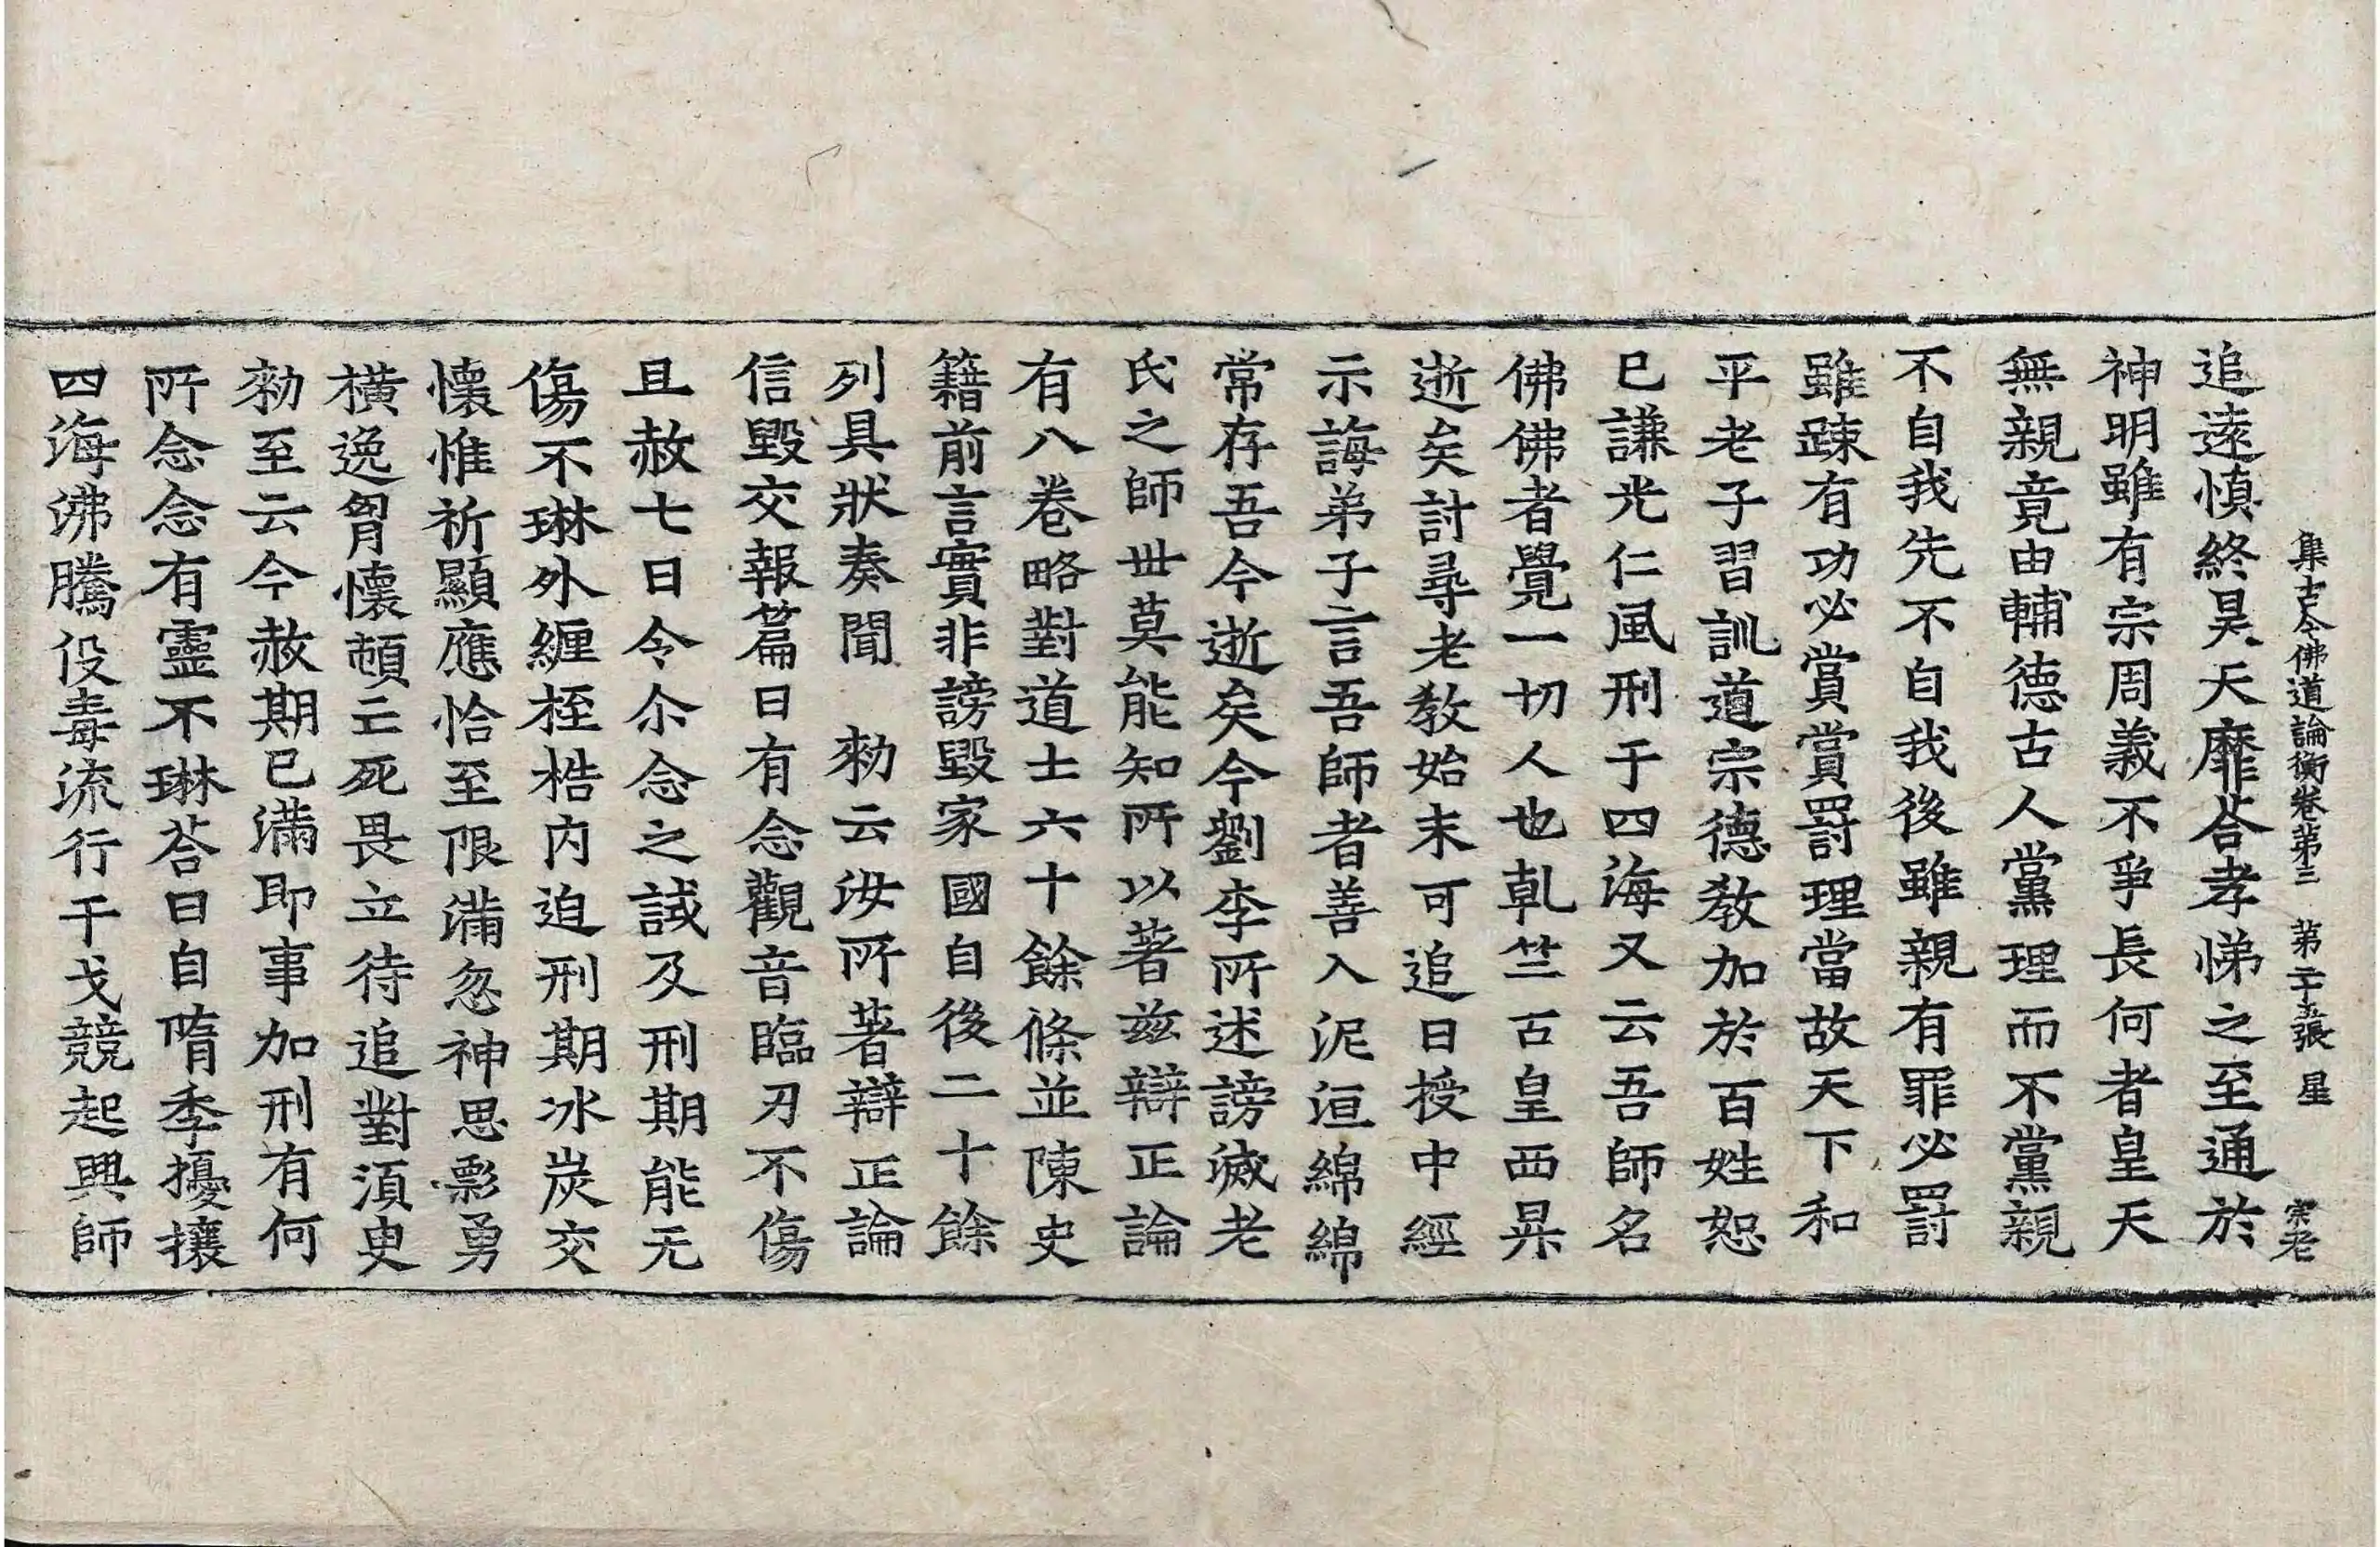 集古今佛道論衡卷第三 第二十五張 星 宗老
追遠慎終昊天靡荅孝悌之至通於
神明雖有宗周義不爭長何者皇天
無親竟由輔德古人黨理而不黨親
不自我先不自我後雖親有罪必罰
雖踈有功必賞賞罰理當故天下和
平老子習訓道宗德教加於百姓恕
已謙光仁風刑于四海又云吾師名
佛佛者覺一切人也乹竺古皇西昇
逝矣討尋老教始末可追日授中經
示誨弟子言吾師者善入泥洹綿綿
常存吾今逝矣今劉李所述謗滅老
氏之師世莫能知所以著兹辯正論
有八卷略對道士六十餘條並陳史
籍前言實非謗毀家國自後二十餘
列具狀奏聞 勑云汝所著辯正論
信毀交報篇曰有念觀音臨刃不傷
且赦七日令尒念之試及刑期能无
傷不琳外纏桎梏内迫刑期冰炭交
懷惟祈顯應恰至限滿忽神思彯勇
橫逸胷懷頓亡死畏立待追對湏臾
勑至云今赦期已滿即事加刑有何
所念念有靈不琳荅曰自隋季擾攘
四海沸騰伇毒流行干戈競起興師